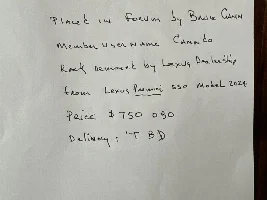 Placet in Forum by Bruce Cann
Member user name Cannto
by Lexus Dealership
from Lexus Premium 550 Model 2024
Price $ 750 090
Delivery: TBD